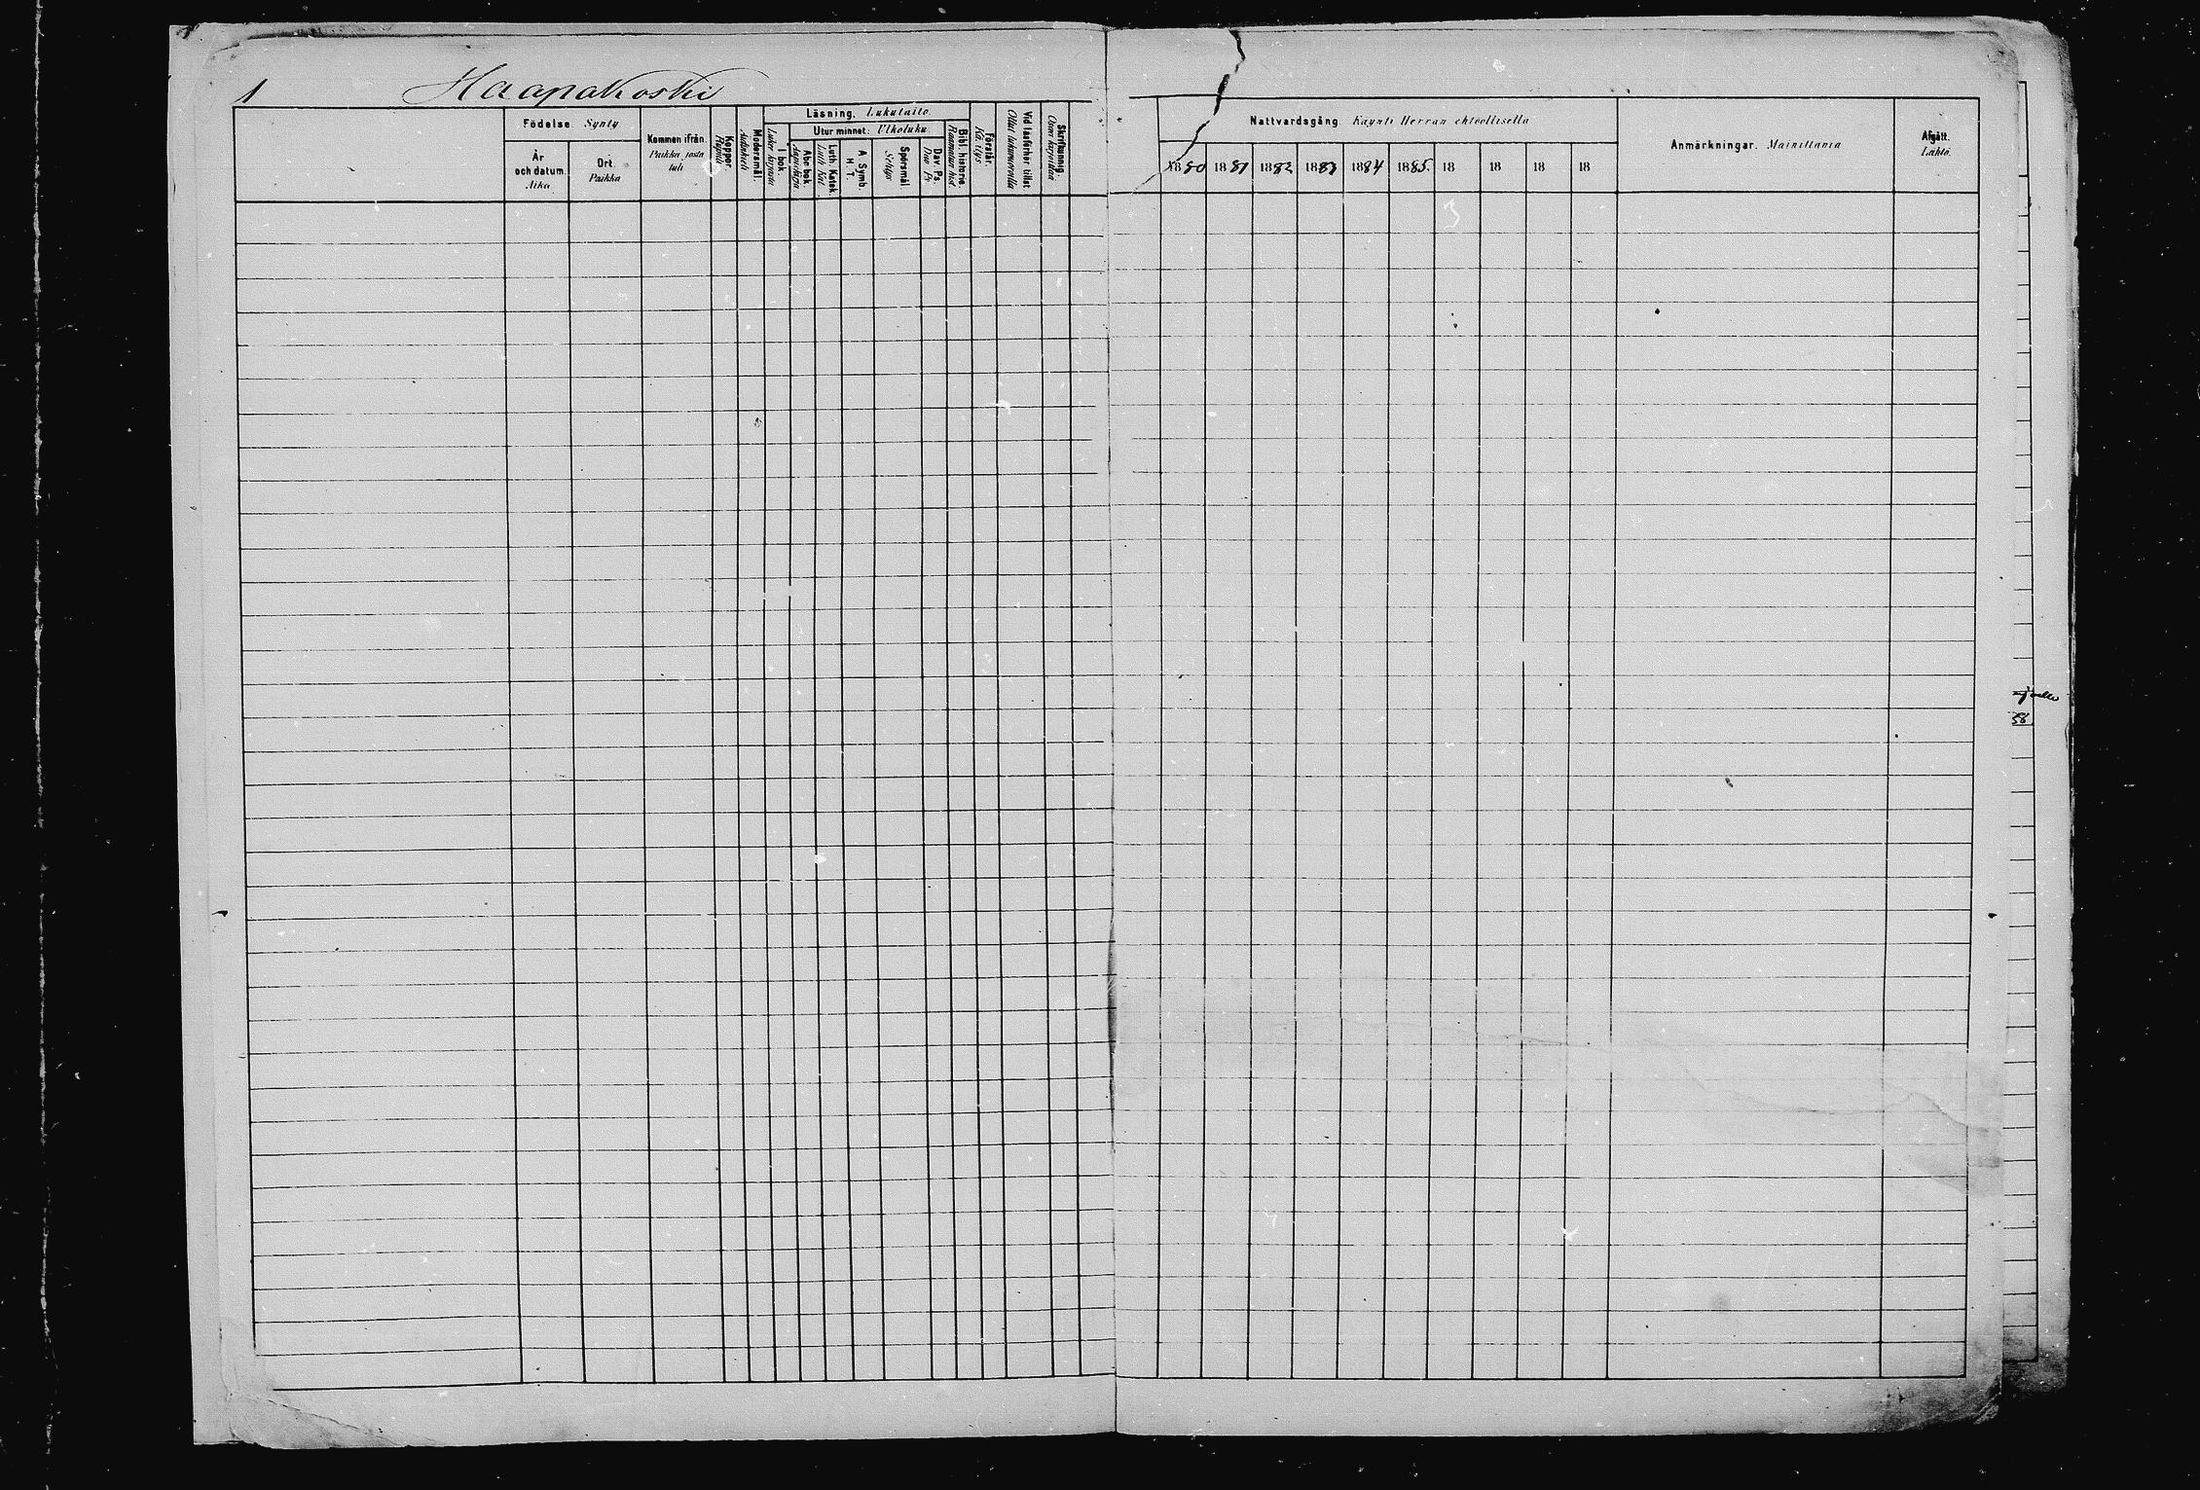 1 Haapakoski
Läsning. Lukutaito.
Födelse. Synty
Utur minnet: Ulkoluku
År och datum. Aika
Ort. Paikka
Kommen ifrån. Paikka josta tuli
Koppor. Rupuli
Modersmål. Äidinkieli
I bok. Lukee kirjasta
Abc bok. Aapiskirja
Luth. Katek. Luth. Kat.
A. Symb. H. T.
Spörsmål
Dav. Ps. Dav. Ps.
Bibl. historie.
Förstår.
Vid läsförhör tillst.
Skriftkunnig.
Nattvardsgång. Käynti Herran ehtoollisella
1880 1881 1882 1883 1884 1885. 18 18 18 18
Anmärkningar. Mainittavia
Afgått. Lähtö.
58